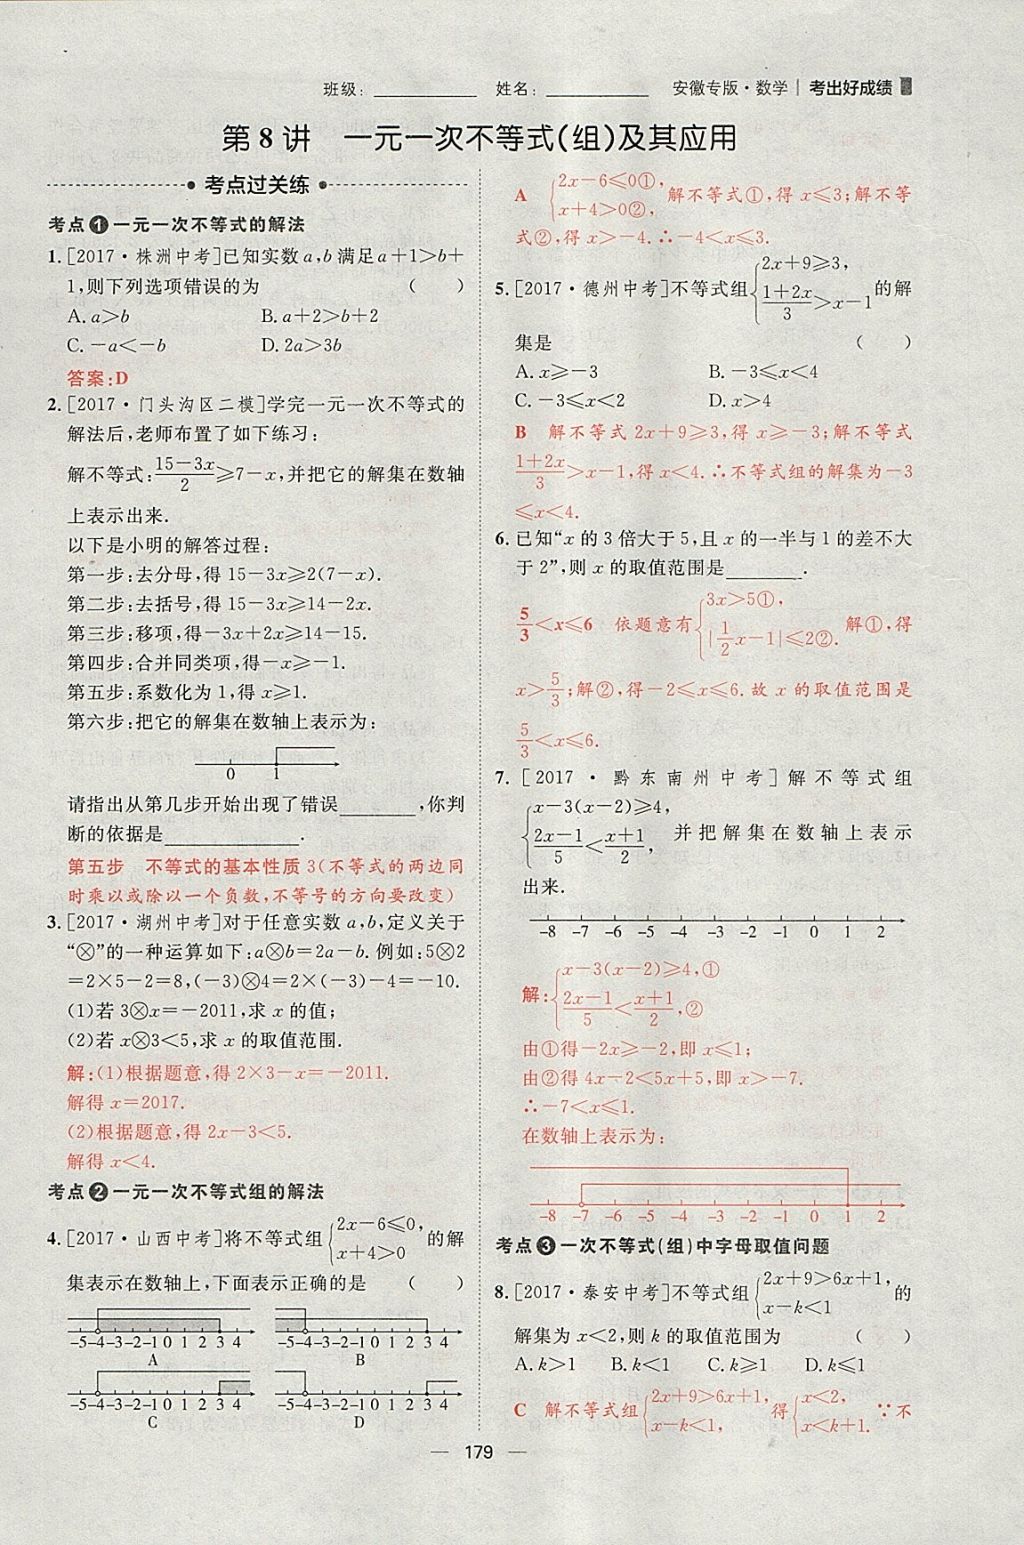 班级：__________ 姓名：__________ 安徽专版·数学 | 考出好成绩
第 8 讲 一元一次不等式(组)及其应用
考点过关练
考点❶一元一次不等式的解法
1.[2017·株洲中考]已知实数a,b满足a+1>b+
1,则下列选项错误的为 ( )
A.a>b B.a+2>b+2
C.-a<-b D.2a>3b
答案:D
2.[2017·门头沟区二模]学完一元一次不等式的
解法后,老师布置了如下练习:
解不等式:(15-3x)/2≥7-x,并把它的解集在数轴
上表示出来.
以下是小明的解答过程:
第一步:去分母,得 15-3x≥2(7-x).
第二步:去括号,得 15-3x≥14-2x.
第三步:移项,得-3x+2x≥14-15.
第四步:合并同类项,得-x≥-1.
第五步:系数化为 1,得 x≥1.
第六步:把它的解集在数轴上表示为:
0 1
请指出从第几步开始出现了错误________,你判
断的依据是______________.
第五步 不等式的基本性质 3(不等式的两边同
时乘以或除以一个负数,不等号的方向要改变)
3.[2017·湖州中考]对于任意实数 a,b,定义关于
“⊗”的一种运算如下:a⊗b=2a-b.例如:5⊗2
=2×5-2=8,(-3)⊗4=2×(-3)-4=-10.
(1)若 3⊗x=-2011,求 x 的值;
(2)若 x⊗3<5,求 x 的取值范围.
解:(1)根据题意,得 2×3-x=-2011.
解得 x=2017.
(2)根据题意,得 2x-3<5.
解得 x<4.
考点❷一元一次不等式组的解法
4.[2017·山西中考]将不等式组{2x-6≤0, x+4>0 的解
集表示在数轴上,下面表示正确的是 ( )
-5-4-3-2-1 0 1 2 3 4 -5-4-3-2-1 0 1 2 3 4
A B
-5-4-3-2-1 0 1 2 3 4 -5-4-3-2-1 0 1 2 3 4
C D
A {2x-6≤0①, x+4>0②, 解不等式①,得 x≤3;解不等
式②,得 x>-4.∴-4<x≤3.
5.[2017·德州中考]不等式组{2x+9≥3, (1+2x)/3>x-1 的解
集是 ( )
A.x≥-3 B.-3≤x<4
C.-3≤x<2 D.x>4
B 解不等式 2x+9≥3,得 x≥-3;解不等式
(1+2x)/3>x-1,得 x<4.∴不等式组的解集为-3
≤x<4.
6.已知“x 的 3 倍大于 5,且 x 的一半与 1 的差不大
于 2”,则 x 的取值范围是________.
5/3<x≤6 依题意有{3x>5①, |1/2x-1|≤2②. 解①,得
x>5/3;解②,得-2≤x≤6.故 x 的取值范围是
5/3<x≤6.
7.[2017·黔东南州中考]解不等式组
{x-3(x-2)≥4, (2x-1)/5<(x+1)/2, 并把解集在数轴上表示
出来.
-8 -7 -6 -5 -4 -3 -2 -1 0 1 2
解:{x-3(x-2)≥4,① (2x-1)/5<(x+1)/2,②
由①得-2x≥-2,即 x≤1;
由②得 4x-2<5x+5,即 x>-7.
∴-7<x≤1.
在数轴上表示为:
-8 -7 -6 -5 -4 -3 -2 -1 0 1 2
考点❸一次不等式(组)中字母取值问题
8.[2017·泰安中考]不等式组{2x+9>6x+1, x-k<1 的
解集为 x<2,则 k 的取值范围为 ( )
A.k>1 B.k<1 C.k≥1 D.k≤1
C 解不等式组{2x+9>6x+1, x-k<1, 得{x<2, x<k+1. ∵不
— 179 —